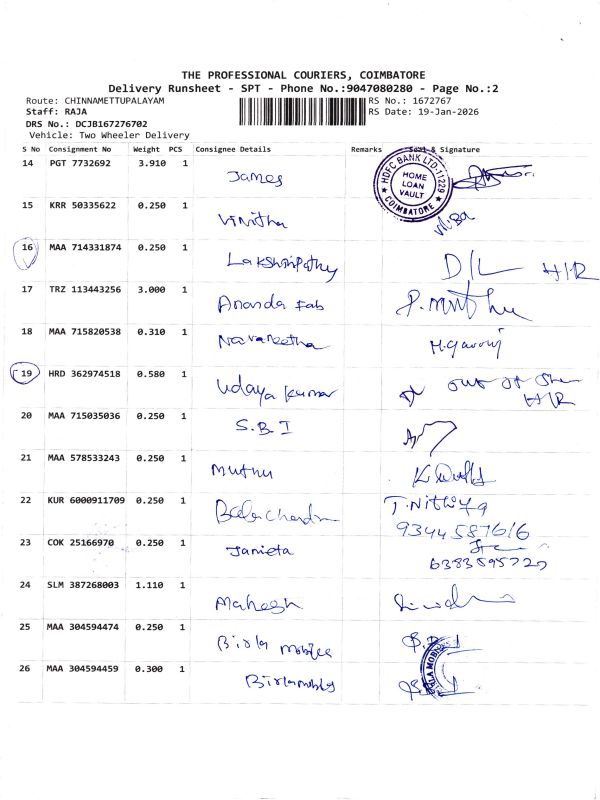 THE PROFESSIONAL COURIERS, COIMBATORE
Delivery Runsheet - SPT - Phone No.:9047080280 - Page No.:2
Route: CHINNAMETTUPALAYAM RS No.: 1672767
Staff: RAJA RS Date: 19-Jan-2026
DRS No.: DCJB167276702
Vehicle: Two Wheeler Delivery
S No Consignment No Weight PCS Consignee Details Remarks Seal & Signature
14 PGT 7732692 3.910 1 James
HDFC BANK LTD-11229
HOME
LOAN
VAULT
COIMBATORE
15 KRR 50335622 0.250 1 Vinitha
16 MAA 714331874 0.250 1 Lakshmipathy D/L H/R
17 TRZ 113443256 3.000 1 Ananda Fab P. Muthu
18 MAA 715820538 0.310 1 Navaneetha
19 HRD 362974518 0.580 1 Udaya Kumar out of
H/R
20 MAA 715035036 0.250 1 S.B I
21 MAA 578533243 0.250 1 Muthu
22 KUR 6000911709 0.250 1 Balachandra T. Nithiya
9344587616
23 COK 25166970 0.250 1 Janieta
6383595720
24 SLM 387268003 1.110 1 Mahesh
25 MAA 304594474 0.250 1 Birla mobiles
26 MAA 304594459 0.300 1 Birla mobils
BIRLA MOBILES